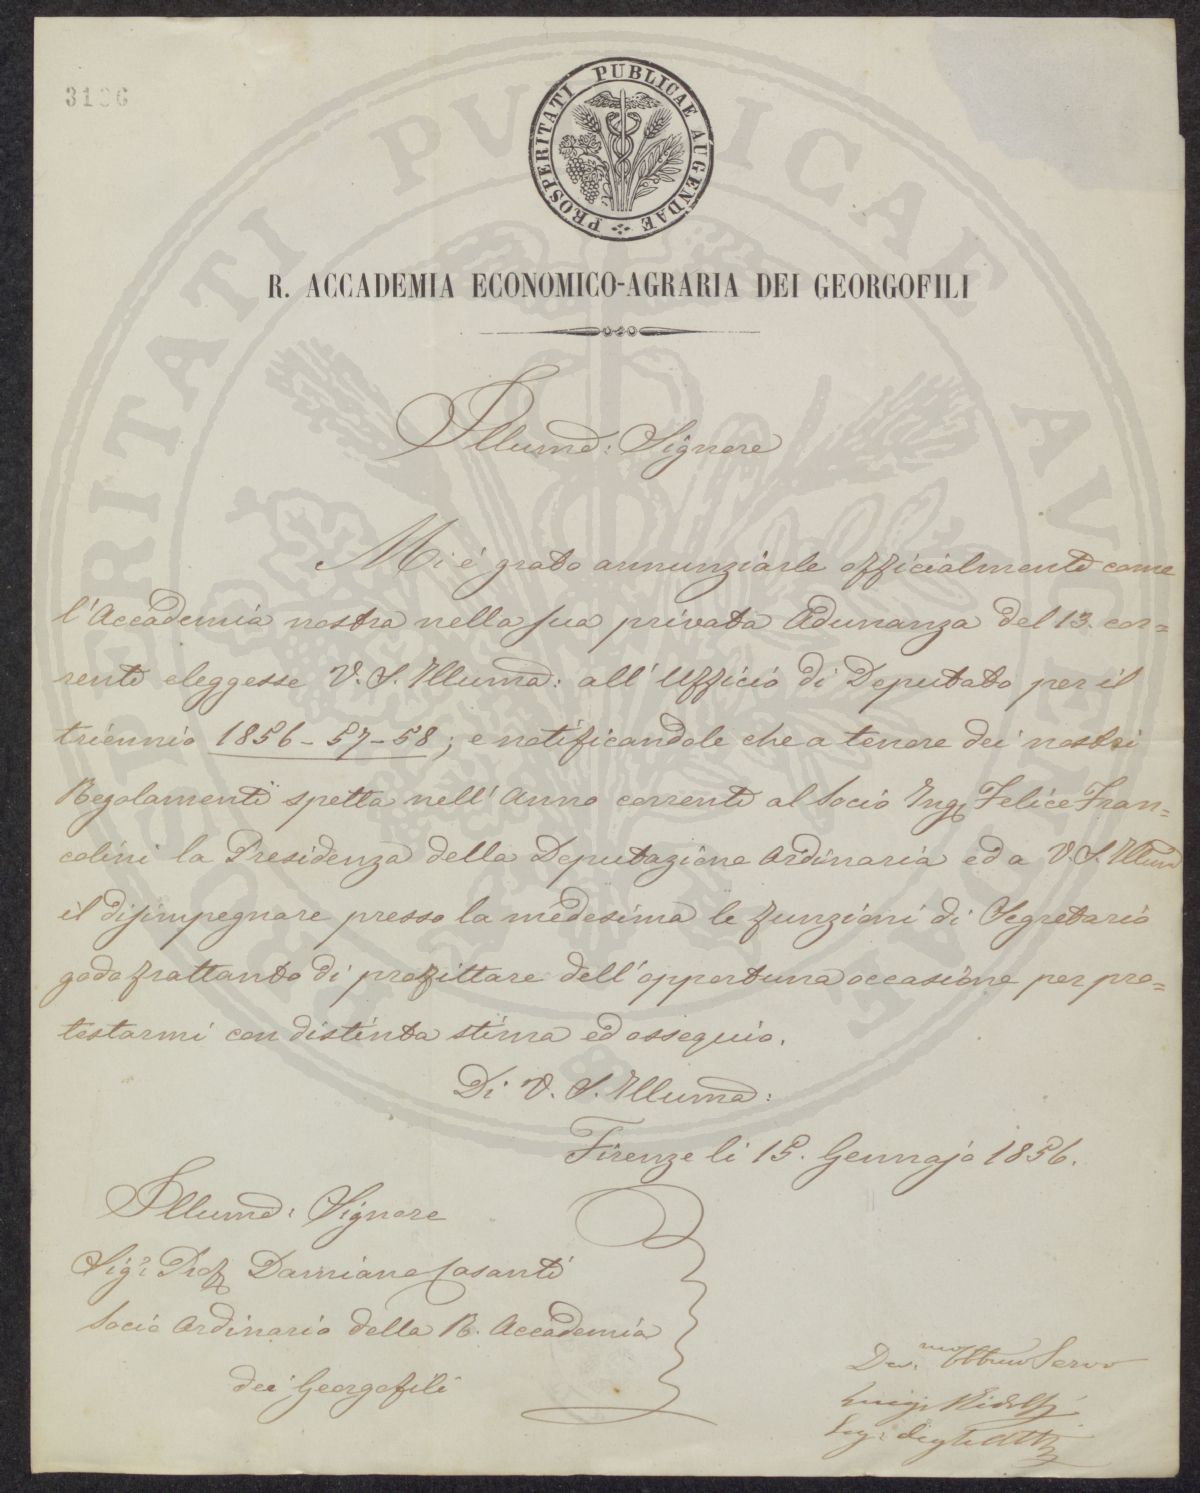 3186
PROSPERITATI PUBLICAE AUGENDAE
R. ACCADEMIA ECONOMICO-AGRARIA DEI GEORGOFILI
Illumo: Signore
Mi è grato annunziarle officialmente come
l'Accademia nostra nella sua privata Adunanza del 13. cor=
rente eleggesse V. S. Illuma: all'Ufficio di Deputato per il
triennio 1856-57-58; e notificandole che a tenore dei nostri
Regolamenti spetta nell'Anno corrente al Socio Ing. Felice Fran=
colini la Presidenza della Deputazione Ordinaria ed a V. S. Illuma
il disimpegnare presso la medesima le funzioni di Segretario
godo frattanto di profittare dell'opportuna occasione per pro=
testarmi con distinta stima ed ossequio.
Di V. S. Illuma:
Firenze li 15. Gennajo 1856.
Illumo: Signore
Sigr: Prof. Damiano Casanti
Socio Ordinario della R. Accademia
dei Georgofili
Dev.mo Obbmo Servo
Luigi Ridolfi
Seg: degli Atti